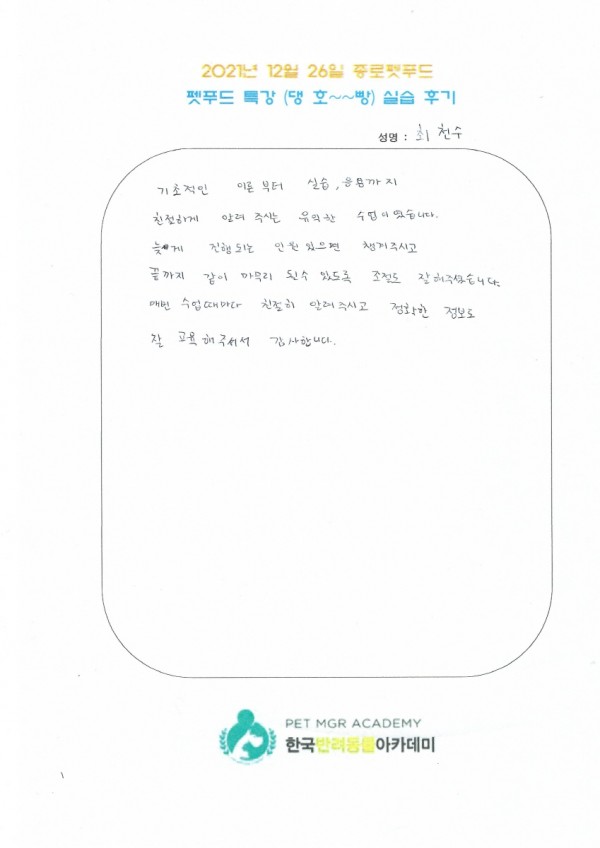 2021년 12월 26일 종로펫푸드
펫푸드 특강 (댕 호~~빵) 실습 후기
성명 : 최천수
기초적인 이론부터 실습,응용까지
친절하게 알려 주시는 유익한 수업이었습니다.
늦게 진행되는 인원있으면 챙겨주시고
끝까지 같이 마무리 될수 있도록 조절도 잘해주셨습니다.
매번 수업때마다 친절히 알려주시고 정확한 정보로
잘 교육해주셔서 감사합니다.
PET MGR ACADEMY
한국반려동물아카데미